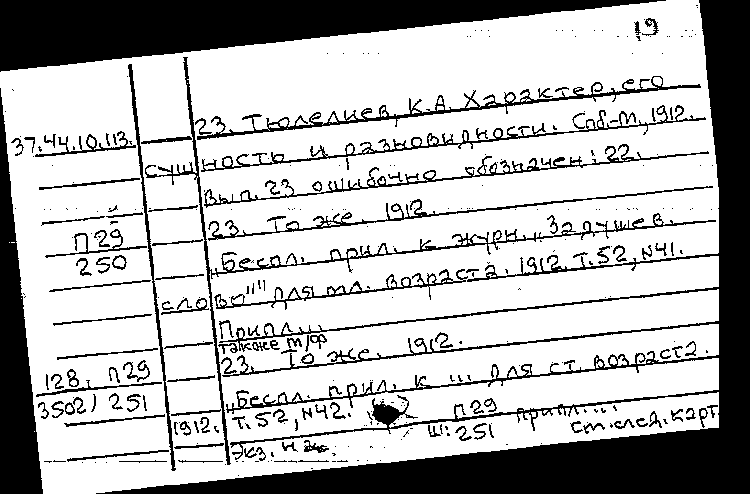 19
23. Тюлелиев, К.А. Характер, его
37.44.10.113.
сущность и разновидности. Спб.-М., 1912.
Вып. 23 ошибочно обозначен: 22.
23. То же. 1912.
П29
250
„Беспл. прил. к журн. „Задушев.
слово"" для мл. возраста. 1912. т.52, №41.
Припл...
также м/ф
23. То же. 1912.
128. П29
3502/ 251
„Беспл. прил. к ... для ст. возраста.
1912. т.52, №42.
П29 припл....
Ш: 251 см.след.карт.
Экз. н